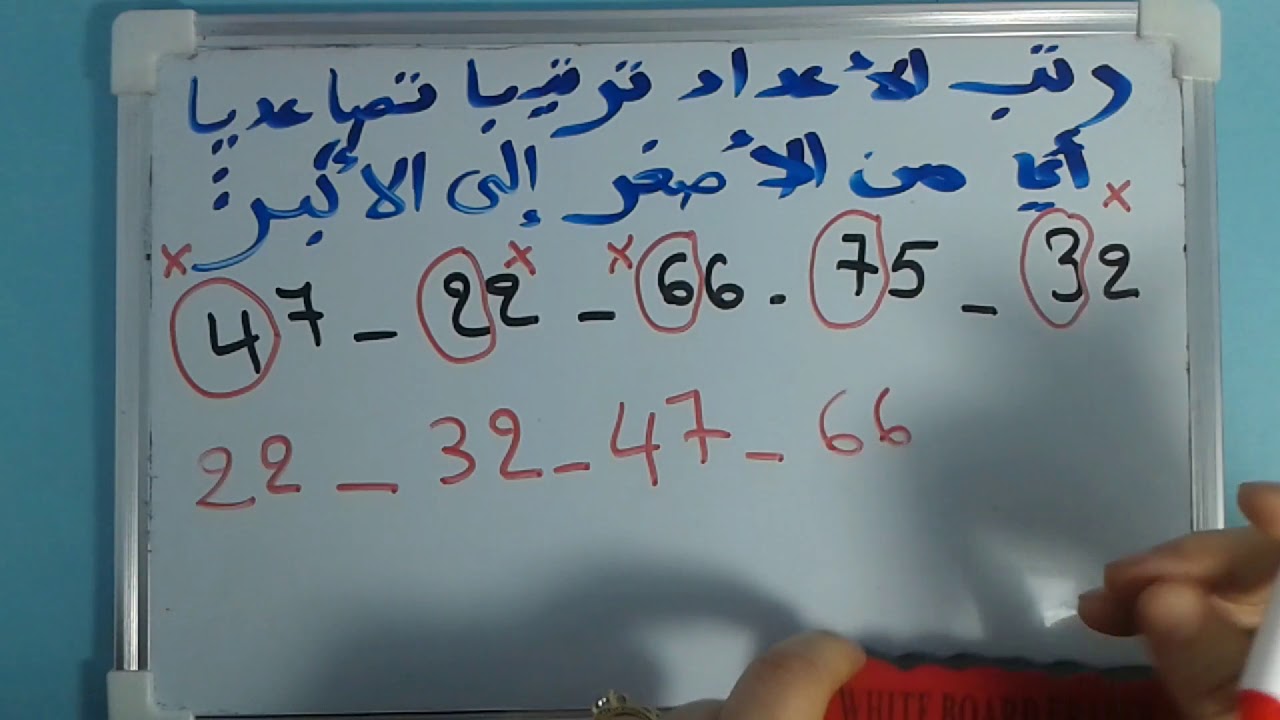 رتب الأعداد ترتيبا تصاعديا
أي من الأصغر إلى الأكبر:
x x x x
47 - 22 - 66 - 75 - 32
22 - 32 - 47 - 66
WHITE BOARD